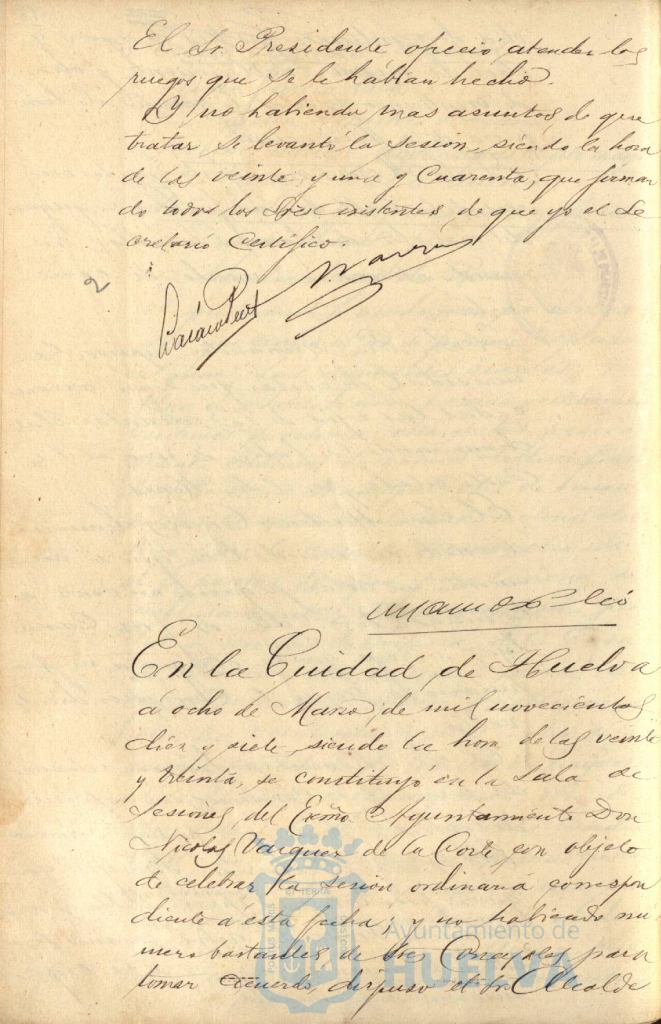 El Sr. Presidente ofreció atender los
ruegos que se le habian hecho.
Y no habiendo mas asuntos de que
tratar se levantó la sesión, siendo la hora
de las veinte y una y Cuarenta, que firman
do todos los Sres asistentes, de que yo el Se
cretario Certifico.
2
En la Cuidad de Huelva
á ocho de Marzo de mil novecientos
diez y siete, siendo la hora de las veinte
y treinta, se constituyó en la Sala de
Sesiones del Exmo Ayuntamiento Don
Nicolas Vazquez de la Corte con objeto
de celebrar la sesión ordinaria correspon
diente á esta fecha; y no habiendo nu
mero bastantes de Sres Concejales para
tomar acuerdo dispuso el Sr. Alcalde
Ayuntamiento de
HUELVA